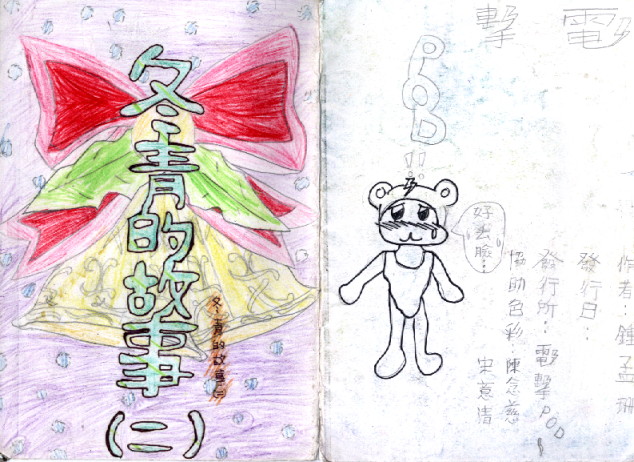 冬青的故事
(二)
冬青的故事㈡
電擊
POD!!
好丟臉…
作者:鍾孟珊
發行日:
發行所:電擊POD
協助色彩 陳念慈
宋薏清